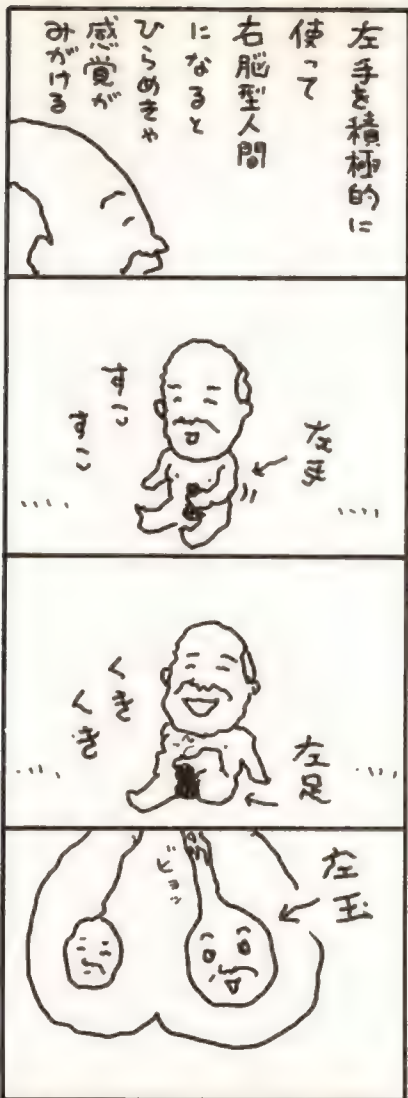 左手を積極的に
使って
右脳型人間
になると
ひらめきや
感覚が
みがける
左手
すこ
すこ
左足
くき
くき
左玉
ピョッ